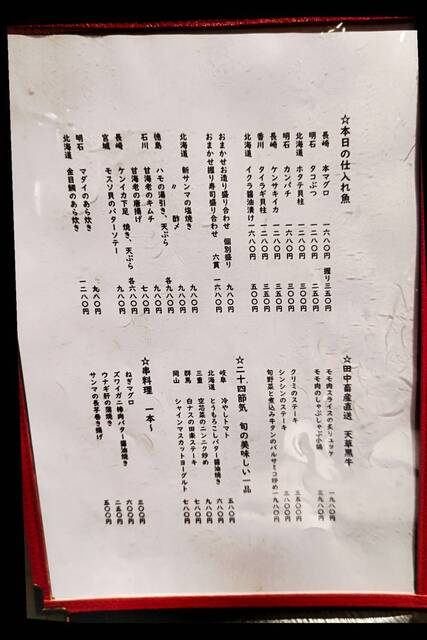 ☆本日の仕入れ魚
長崎 本マグロ 一六八〇円 握り三五〇円
明石 タコぶつ 一二八〇円 二五〇円
北海道 ホタテ貝柱 一二八〇円 三〇〇円
明石 カンパチ 一六八〇円 三〇〇円
長崎 ケンサキイカ 一二八〇円 三五〇円
香川 タイラギ貝柱 一二八〇円 三五〇円
北海道 イクラ醤油漬け 一六八〇円 五〇〇円
おまかせお造り盛り合わせ 個別盛り 九八〇円
おまかせ握り寿司盛り合わせ 六貫 一六八〇円
北海道 新サンマの塩焼き 九八〇円
〃 酢〆 九八〇円
徳島 ハモの湯引き、天ぷら 各九八〇円
石川 甘海老のキムチ 七八〇円
甘海老の唐揚げ
長崎 ケンイカ下足 焼き、天ぷら 各六八〇円
宮城 モスソ貝のバターソテー 九八〇円
明石 マダイのあら炊き 九八〇円
北海道 金目鯛のあら炊き 一二八〇円
☆田中畜産直送 天草黒牛
モモ肉スライスの炙りユッケ 一九八〇円
モモ肉のしゃぶしゃぶ小鍋 三九八〇円
クリミのステーキ 三五〇〇円
シンシンのステーキ 三八〇〇円
旬野菜と煮込み牛タンのバルサミコ炒め 一九八〇円
☆二十四節気 旬の美味しい一品
岐阜 冷やしトマト 五八〇円
北海道 とうもろこしバター醤油焼き 六八〇円
三重 空芯菜のニンニク炒め 九八〇円
群馬 白ナスの田楽ステーキ 七八〇円
岡山 シャインマスカットヨーグルト 七八〇円
☆串料理 一本〜
ねぎマグロ 三〇〇円
ズワイガニ棒肉バター醤油焼き 六〇〇円
ウナギ肝の蒲焼き 二五〇円
サンマの長芋巻き揚げ 五〇〇円